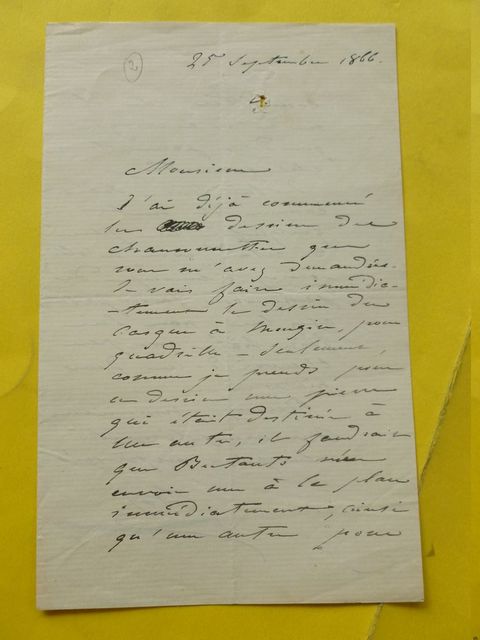 2
25 Septembre 1866.
Monsieur
J'ai déjà commencé
les dessins des
chansonnettes que
vous m'avez demandés.
Je vais faire immédia-
-tement le dessin du
Casque à Mengin, pour
quadrille - seulement,
comme je prends pour
ce dessin une pierre
qui était destinée à
un autre, il faudrait
que Bertauts m'en
envoie une à la place
immédiatement, ainsi
qu'une autre pour